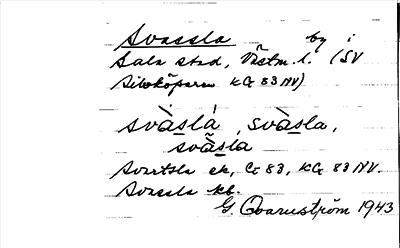 Svassla by i
Sala stad, Västm. l. (SV
Silvköparen KG 83 NV)
svàslá, svàsla,
svãsla
Svartsla ek, G 83, KG 83 NV.
Svassla kb.
G. Qvarnström 1943